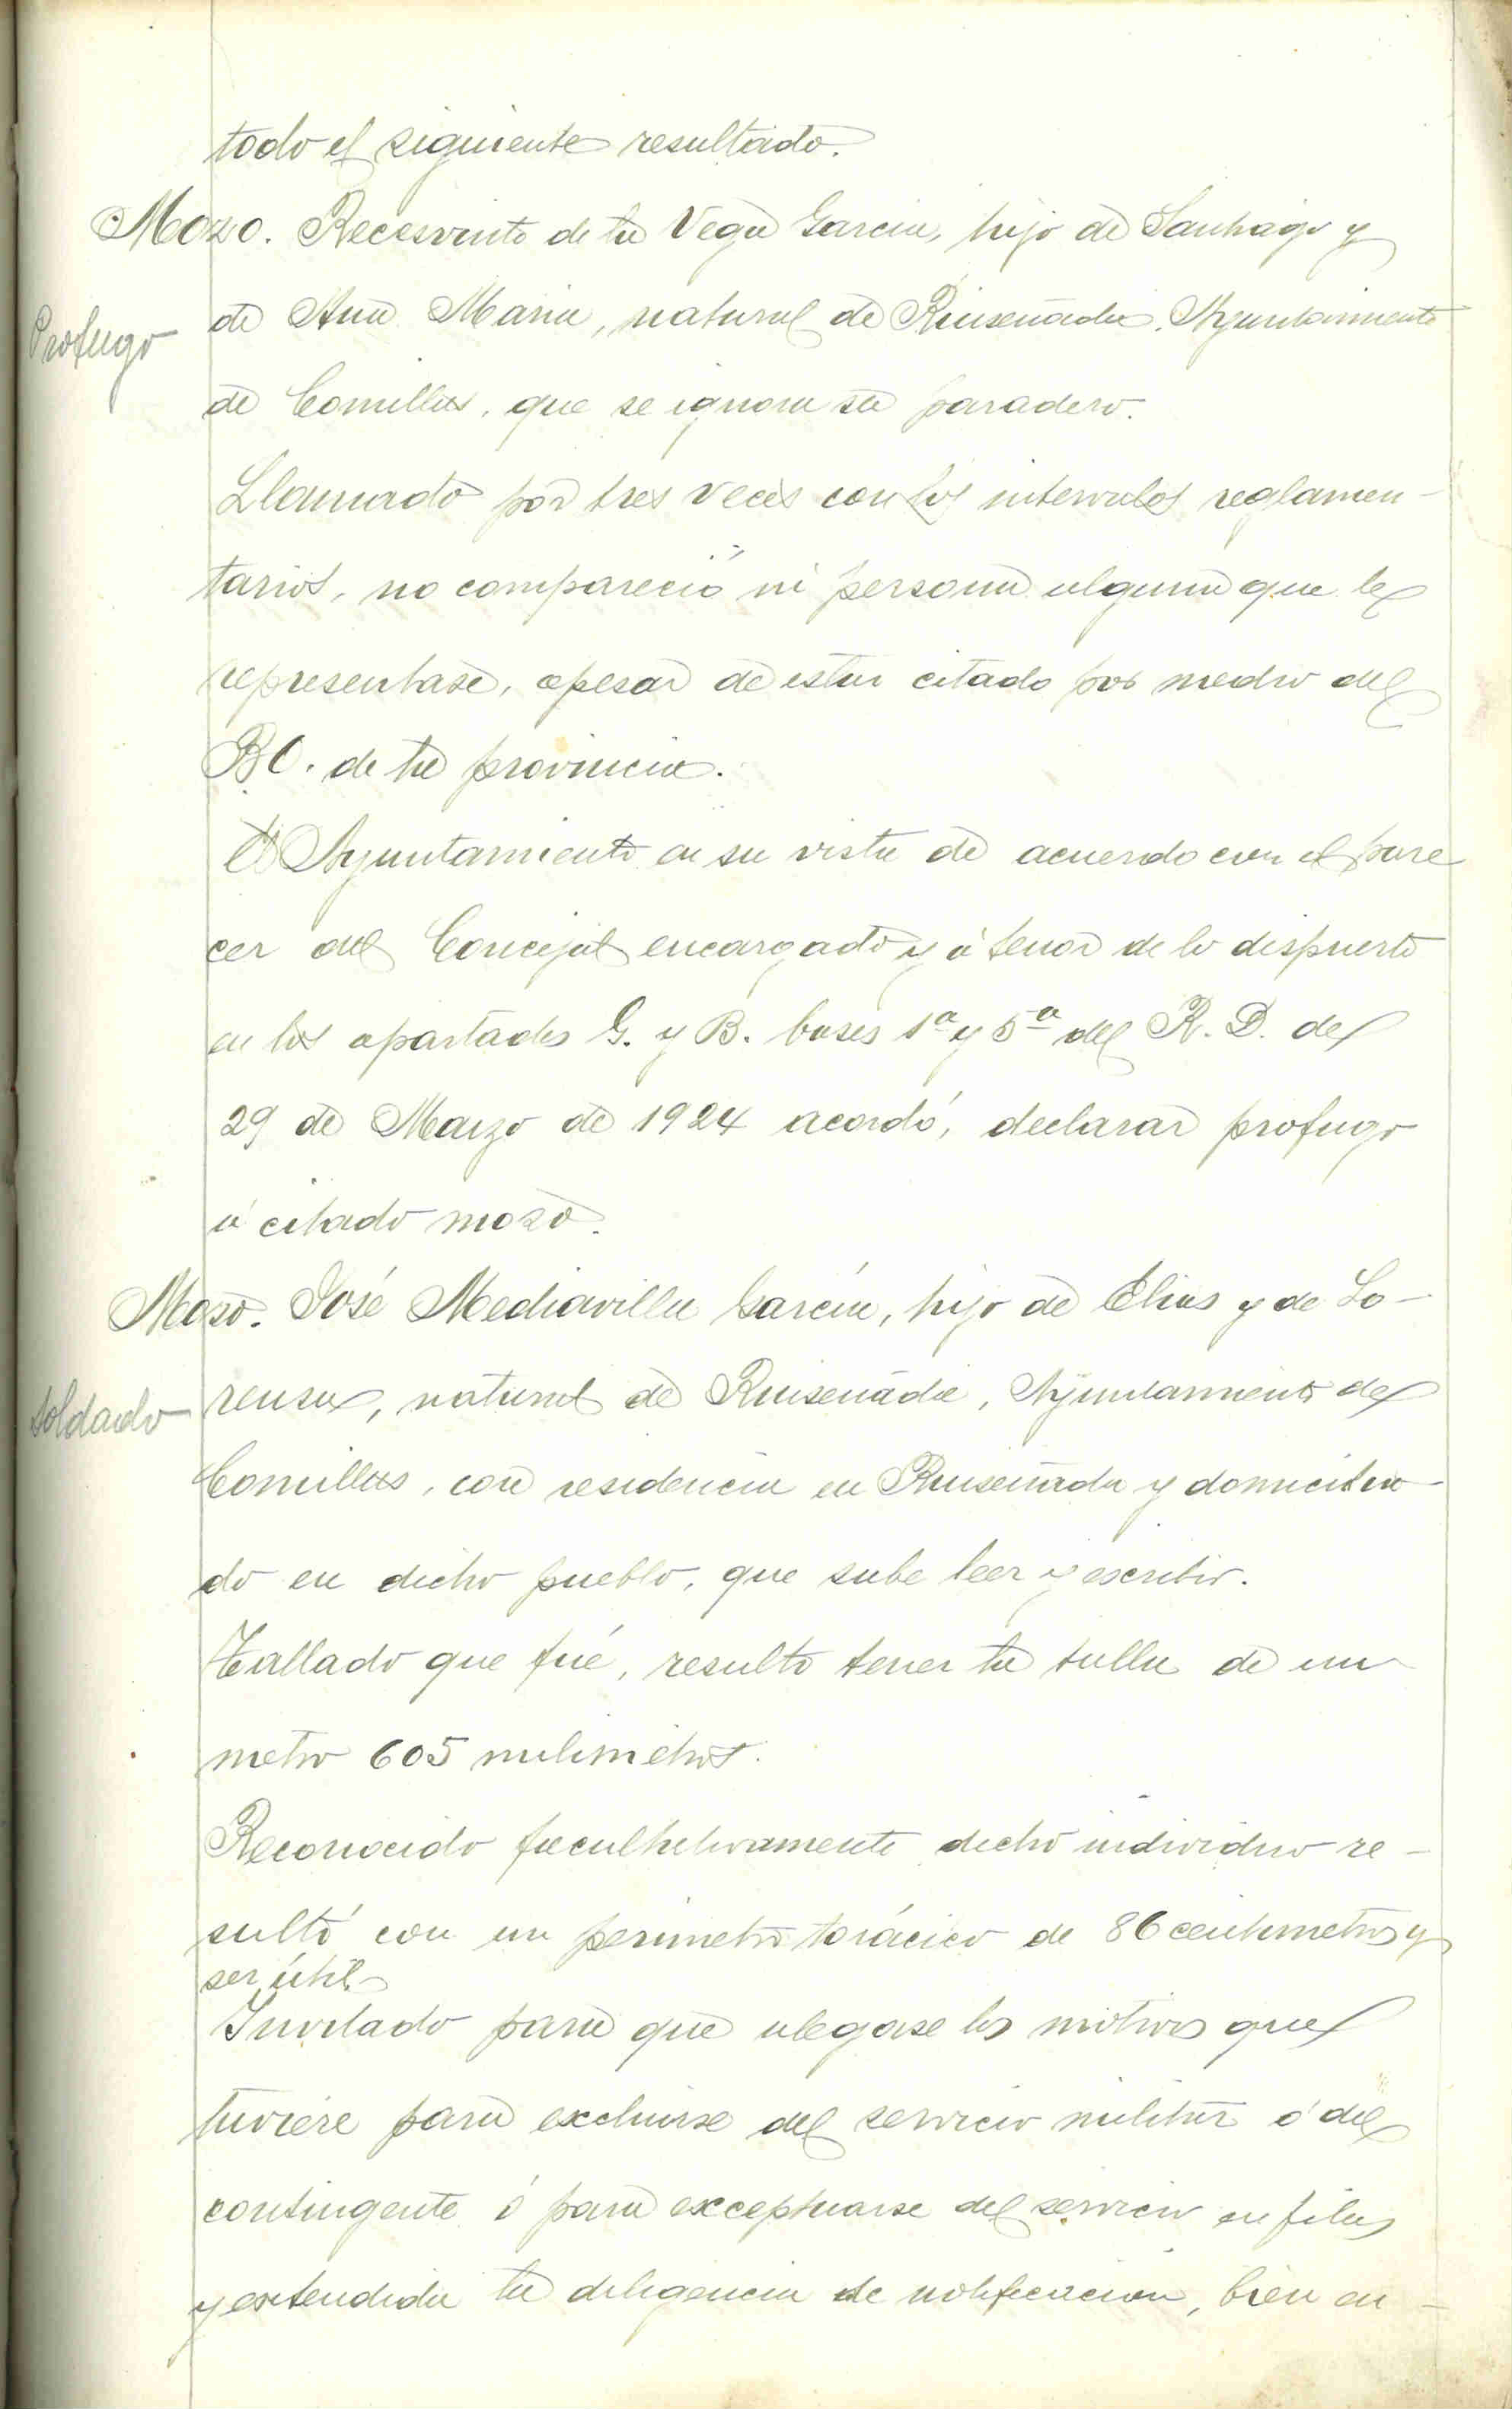 todo el siguiente resultado.
Mozo. Recesvinto de la Vega Garcia, hijo de Santiago y
Profugo
de Ana Maria, natural de Ruiseñada, Ayuntamiento
de Comillas, que se ignora su paradero.
Llamado por tres veces con los intervalos reglamen-
tarios, no compareció ni persona alguna que le
representase, apesar de estar citado por medio del
B.O. de la provincia.
El Ayuntamiento en su vista de acuerdo con el pare
cer del Concejal encargado y á tenor de lo dispuesto
en los apartados G. y B. bases 1ª y 5ª del R. D. de
29 de Marzo de 1924 acordó, declarar profugo
á citado mozo.
Mozo. José Mediavilla García, hijo de Elias y de Lo-
soldado
rensa, natural de Ruiseñada, Ayuntamiento de
Comillas, con residencia en Ruiseñada y domicilia
do en dicho pueblo, que sabe leer y escribir.
Tallado que fué, resulto tener la talla de un
metro 605 milimetros.
Reconocido facultativamente dicho individuo re-
sultó con un perimetro torácico de 86 centimetros y
ser útil
Invitado para que alegase los motivos que
tuviere para excluirse del servicio militar ó del
contingente ó para exceptuarse del servicio en filas
y extendida la diligencia de notificacion, bien en-